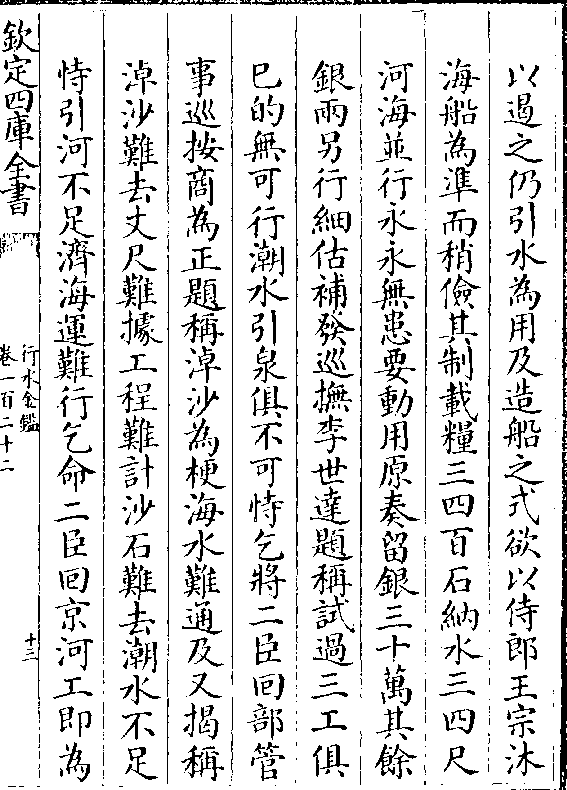 以遏之仍引水為用及造船之式欲以侍郎王宗沐
海船為準而稍儉其制載糧三四百石納水三四尺
河海並行永永無患要動用原奏留銀三十萬其餘
銀兩另行細估補發巡撫李世達題稱試過三工俱
已的無可行潮水引泉俱不可恃乞將二臣回部管
事巡按商為正題稱淖沙為梗海水難通及又揭稱
淖沙難去丈尺難據工程難計沙石難去潮水不足
恃引河不足濟海運難行乞命二臣回京河工即為
欽定四庫全書
行水金鑑
卷一百二十二
十三